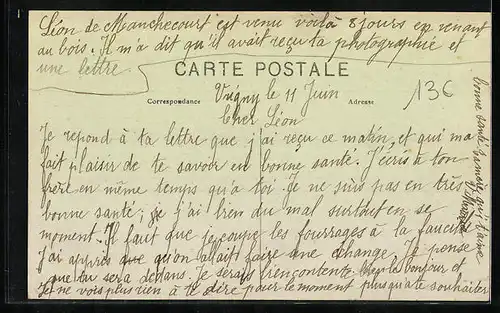 Léon de Manchecourt est venu voilà 8 jours en venant
au bois. Il m'a dit qu'il avait reçu ta photographie et
une lettre.
CARTE POSTALE
Correspondance
Adresse
Vrigny le 11 Juin
136
Cher Léon
Je repond à ta lettre que j'ai reçu ce matin, et qui ma
fait plaisir de te savoir en bonne santé. J'écris à ton
frère en même temps qu'a toi. Je ne suis pas en très
bonne santé, je j'ai bien du mal surtout en se
moment. Il faut que je coupe les fourrages à la faucille
J'ai appris que qu'on allait faire une échange. Je pense
que tu sera dedans. Je serais bien contente. Bien le bonjour et
Je ne vois plus rien à te dire pour le moment plus qu'a te souhaiter
bonne santé. ta mère qui t'aime